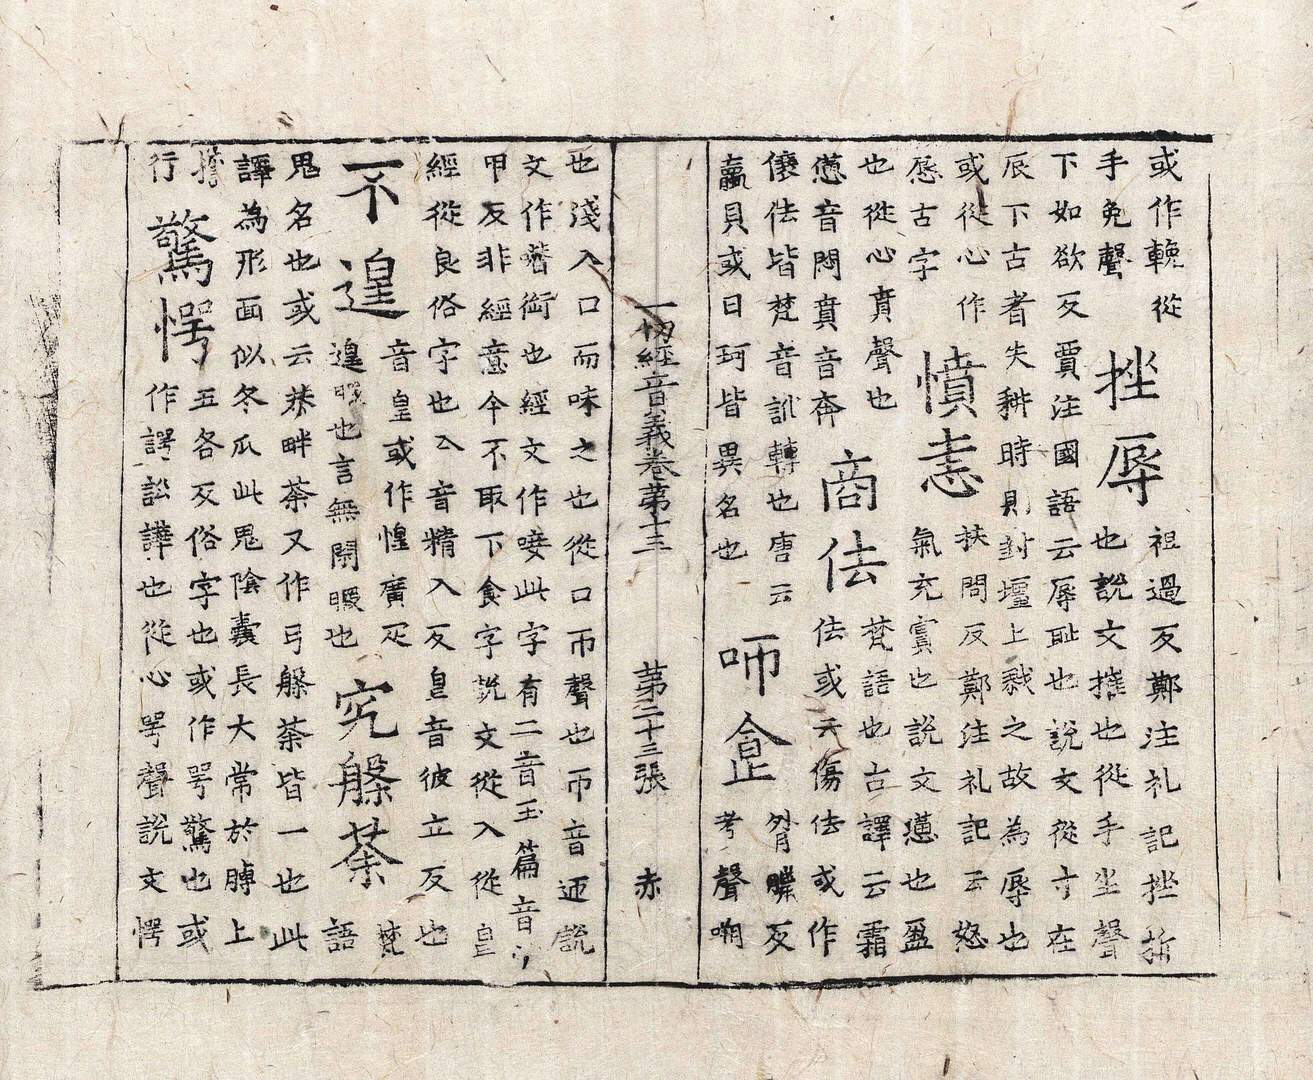 或作輓從
手免聲
挫辱
祖過反鄭注礼記挫折
也說文摧也從手坐聲
下如欲反賈注國語云辱恥也說文從寸在
辰下古者失耕時則封壇上戮之故為辱也
或從心作
古字
憤恚
扶問反鄭注礼記云怒
氣充實也說文懣也盈
也從心賁聲也
懣音悶賁音奔
商佉
梵語也古譯云霜
佉或云傷佉或作
儴佉皆梵音訛轉也唐云
蠃貝或曰珂皆異名也
咂
反
考聲
一切經音義卷第十三 第二十三張 赤
也淺入口而味之也從口帀聲也帀音迊說
文作噆銜也經文作唼此字有二音玉篇音
甲反非經意今不取下食字說文從入從皀
經從良俗字也亼音精入反皀音彼立反也
不遑
音皇或作惶廣疋
遑暇也言無閑暇也
究槃荼
梵
語
鬼名也或云恭畔荼又作弓槃荼皆一也此
譯為形面似冬瓜此鬼陰囊長大常於膊上
擔
行
驚愕
五各反俗字也或作咢驚也或
作諤訟譁也從心咢聲說文愕